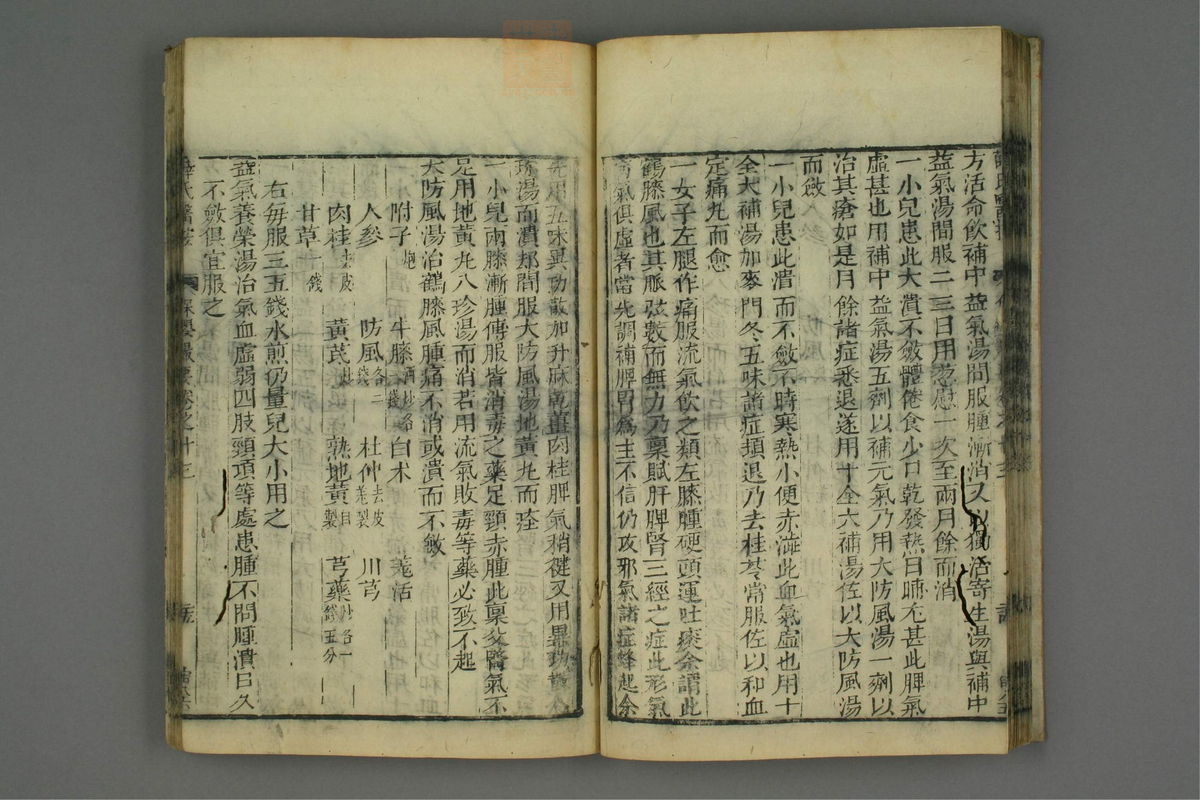 方活命飲補中益氣湯間服腫漸消又以獨活寄生湯與補中
益氣湯間服二三日用葱慰一次至兩月餘而消
一小兒患此大潰不斂體倦食少口乾發熱日晡尤甚此脾氣
虛甚也用補中益氣湯五劑以補元氣乃用大防風湯一劑以
治其瘡如是月餘諸症悉退遂用十全大補湯佐以大防風湯
而斂
一小兒患此潰而不斂不時寒熱小便赤澁此血氣虛也用十
全大補湯加麥門冬五味諸症頓退乃去桂苓常服佐以和血
定痛丸而愈
一女子左腿作痛服流氣飲之類左膝腫硬頭運吐痰余謂此
鶴膝風也其脈弦數而無力乃稟賦肝脾腎三經之症此形氣
病氣俱虛者當先調補脾胃為主不信仍攻邪氣諸症蜂起余
先用五味異功散加升麻乾薑肉桂脾氣稍健又用異功散八
珍湯而潰却間服大防風湯地黃丸而痊
一小兒兩膝漸腫傳服皆消毒之藥足頸赤腫此稟父腎氣不
足用地黃丸八珍湯而消若用流氣敗毒等藥必致不起
大防風湯治鶴膝風腫痛不消或潰而不斂
附子炮 牛膝酒炒各一錢 白术 羗活
人參 防風各二錢 杜仲去皮薑製 川芎
肉桂去皮 黃芪炒 熟地黃自製 芎藥炒各一錢五分
甘草一錢
右每服三五錢水煎仍量兒大小用之
益氣養榮湯治氣血虛弱四肢頸項等處患腫不問腫潰日久
不斂俱宜服之